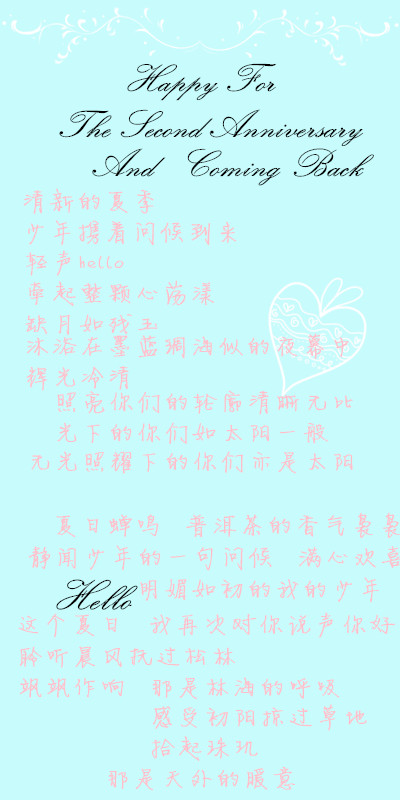 Happy For
The Second Anniversary
And Coming Back
清新的夏季
少年携着问候到来
轻声hello
牵起整颗心荡漾
缺月如残玉
沐浴在墨蓝绸海似的夜幕中
辉光冷清
照亮你们的轮廓清晰无比
光下的你们如太阳一般
无光照耀下的你们亦是太阳
夏日蝉鸣 普洱茶的香气袅袅
静闻少年的一句问候 满心欢喜
Hello 明媚如初的我的少年
这个夏日 我再次对你说声你好
聆听晨风抚过松林
飒飒作响 那是林海的呼吸
感受初阳掠过草地
拾起珠玑
那是天外的暖意